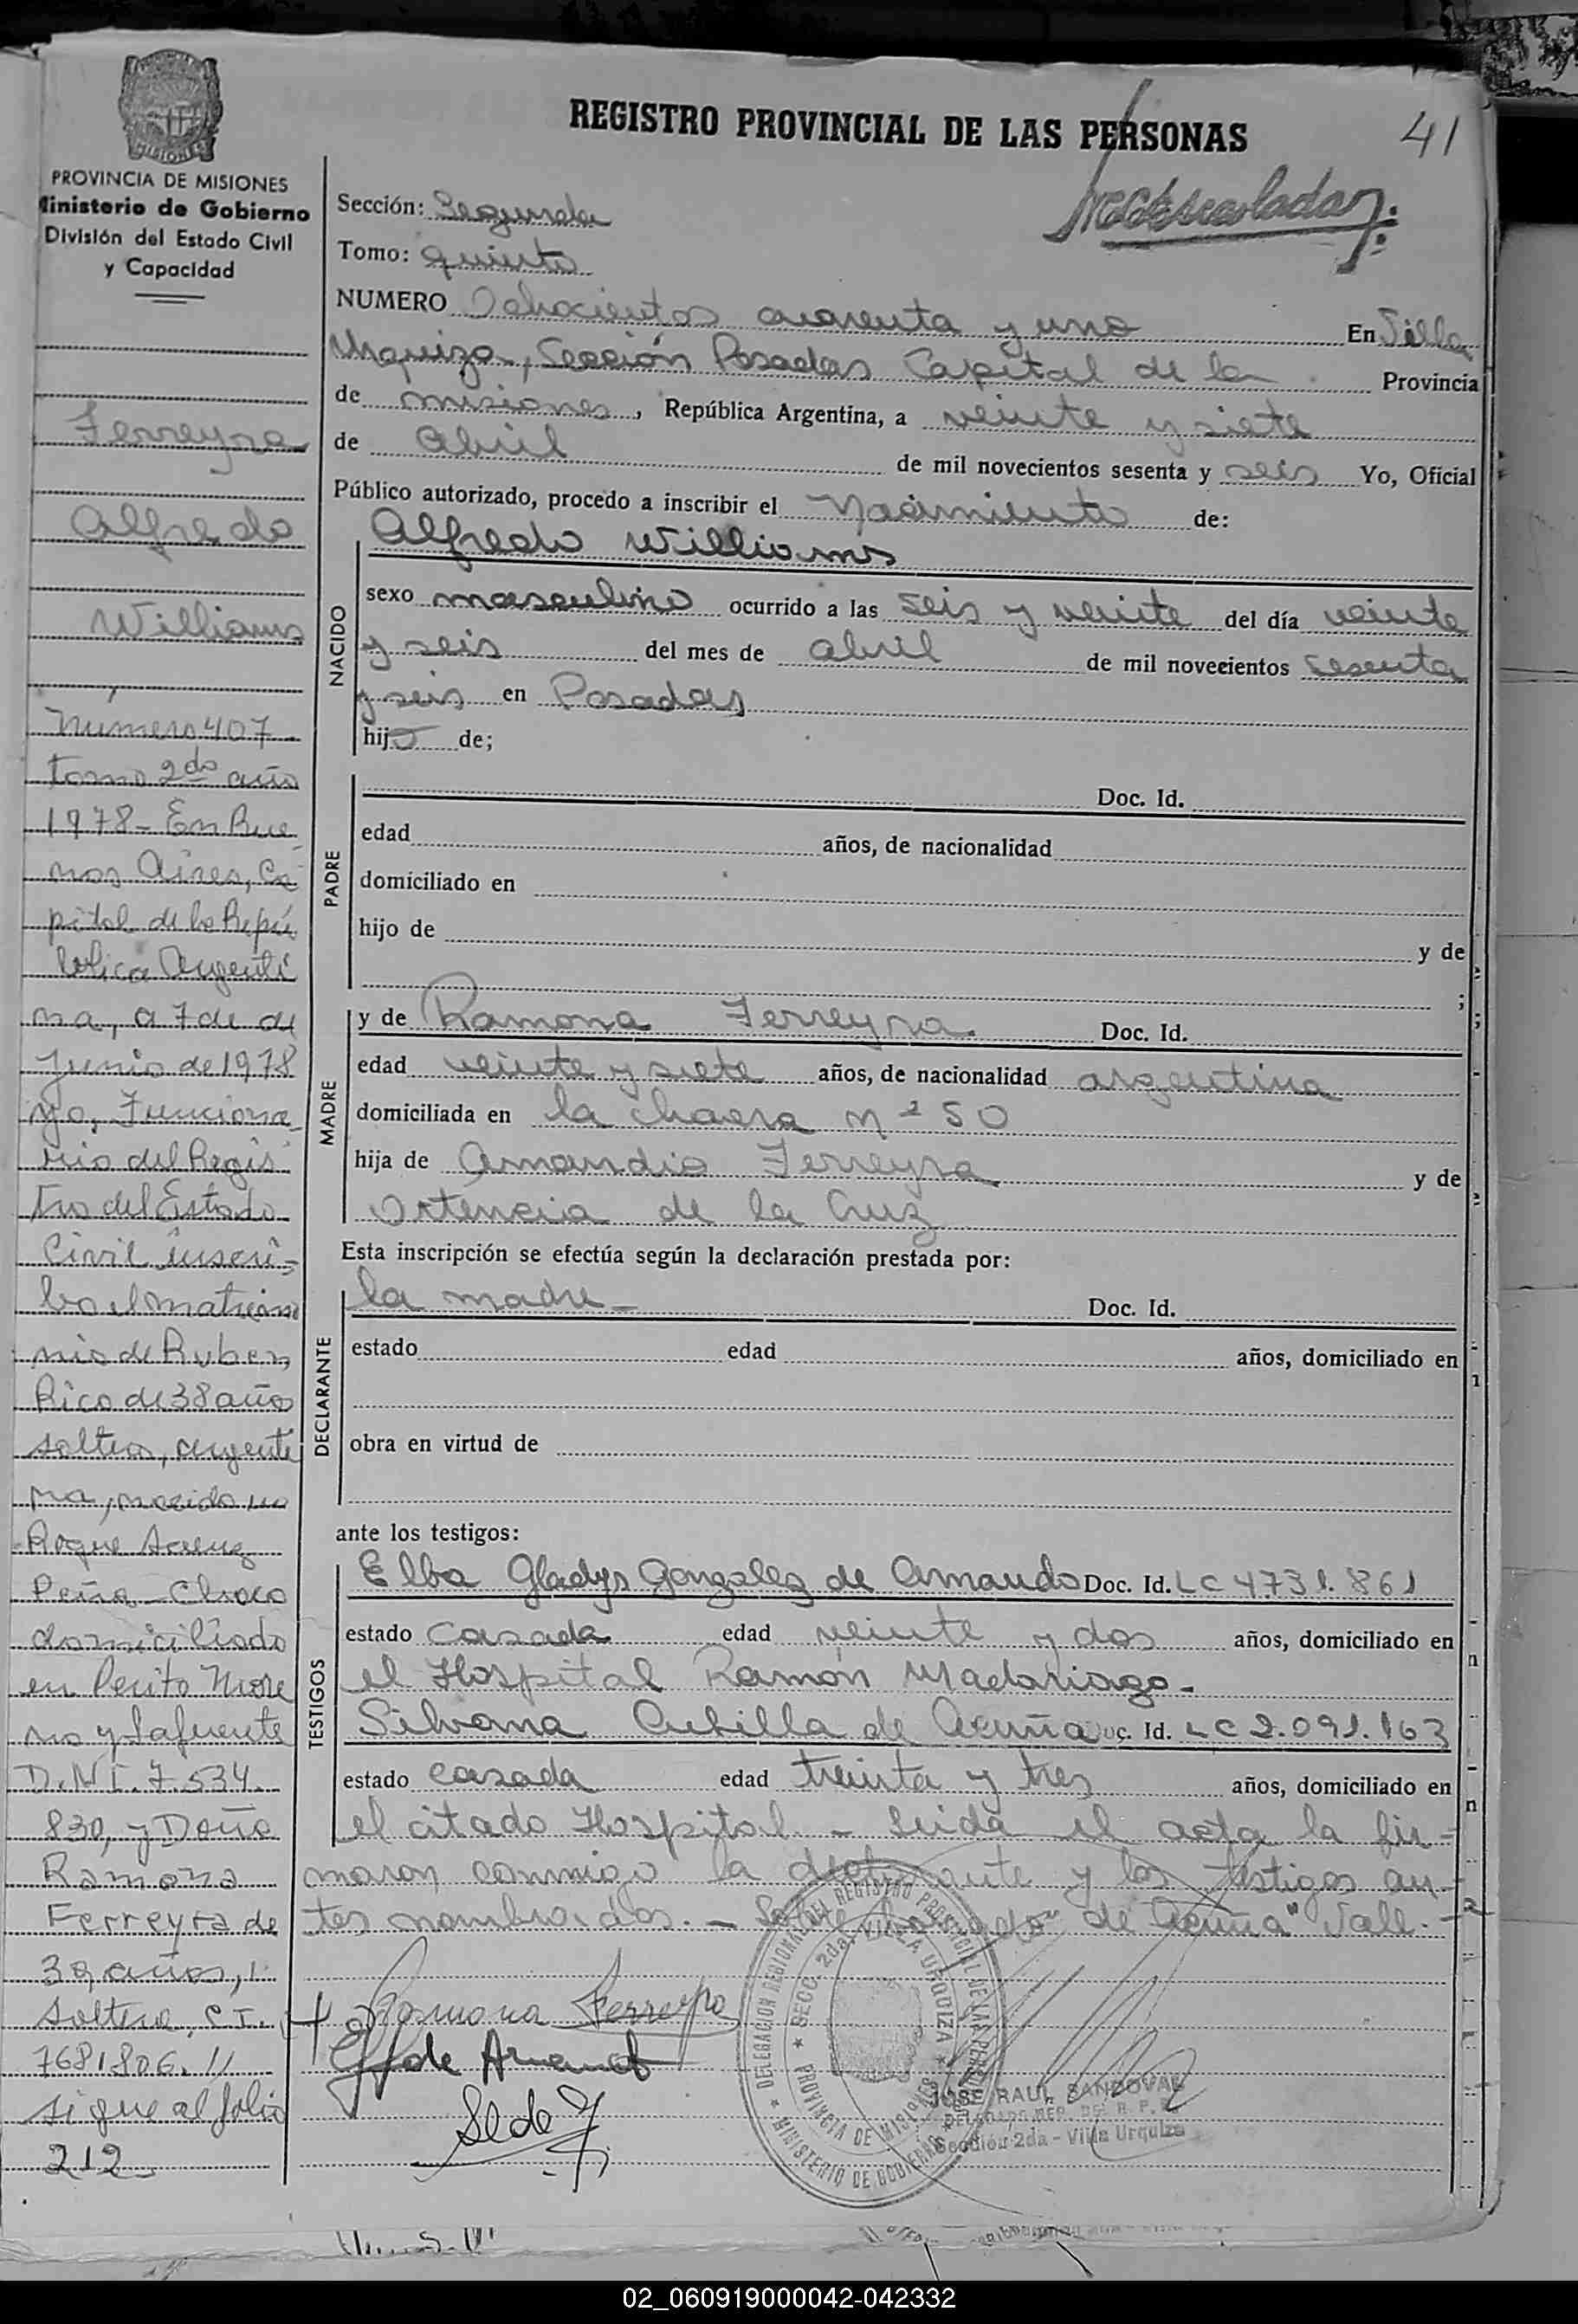 REGISTRO PROVINCIAL DE LAS PERSONAS
41
MISIONES
PROVINCIA DE MISIONES
Ministerio de Gobierno
División del Estado Civil
y Capacidad
Ferreyra
Alfredo
Williams
Número 407
tomo 2do año
1978 - En Bue
nos Aires, Ca
pital de la Repú
blica Argenti
na, a 7 de de
Junio de 1978
yo, Funciona
rio del Regis
tro del Estado
Civil inscri-
bo el matrimo
nio de Ruben
Rico de 38 años
soltero, argenti
na, nacido en
Roque Saenz
Peña - Chaco
domiciliado
en Perito More
no y Lafuente
D.N.I. 7.534.
830, y Doña
Ramona
Ferreyra de
39 años,
soltera, C.I.
7681806. //
sigue al folio
212
Sección: Segunda
Tomo: quinto
NUMERO Ochocientos cuarenta y uno En Villa
Urquiza, Sección Posadas Capital de la Provincia
de misiones, República Argentina, a veinte y siete
de abril de mil novecientos sesenta y seis Yo, Oficial
Público autorizado, procedo a inscribir el Nacimiento de:
NACIDO
Alfredo Williams
sexo masculino ocurrido a las seis y veinte del día veinte
y seis del mes de abril de mil novecientos sesenta
y seis en Posadas
hijo de;
PADRE
Doc. Id.
edad años, de nacionalidad
domiciliado en
hijo de y de
;
MADRE
y de Ramona Ferreyra. Doc. Id.
edad veinte y siete años, de nacionalidad argentina
domiciliada en la chacra nº 50
hija de Amandio Ferreyra y de
Ortencia de la Cruz
Esta inscripción se efectúa según la declaración prestada por:
DECLARANTE
la madre - Doc. Id.
estado edad años, domiciliado en
obra en virtud de
ante los testigos:
TESTIGOS
Elba Gladys Gonzalez de Amando Doc. Id. LC 4731.861
estado casada edad veinte y dos años, domiciliado en
el Hospital Ramón Madariaga -
Silvana Cubilla de Acuña Doc. Id. LC 2.091.163
estado casada edad treinta y tres años, domiciliado en
el citado Hospital - Leida el acta la fir-
maron conmigo la declarante y los testigos an-
tes nombrados. - Sobre borrado "de Acuña" Vale. -
Ramona Ferreyra
DELEGACION REGIONAL DEL REGISTRO PROVINCIAL DE LAS PERSONAS
SECC. 2da. VILLA URQUIZA
PROVINCIA DE MISIONES
MINISTERIO DE GOBIERNO
JOSE RAUL SANDOVAL
Sección 2da - Villa Urquiza
02_060919000042-042332